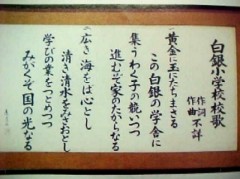 白銀小学校校歌
作詞
作曲 不詳
黄金に玉にたちまさる
この白銀の学舎に
集うわく子の競いつつ
進むぞ家のたからなる
広き海をば心とし
清き清水をみさおとし
学びの業をつとめつつ
みがくぞ国の光なる